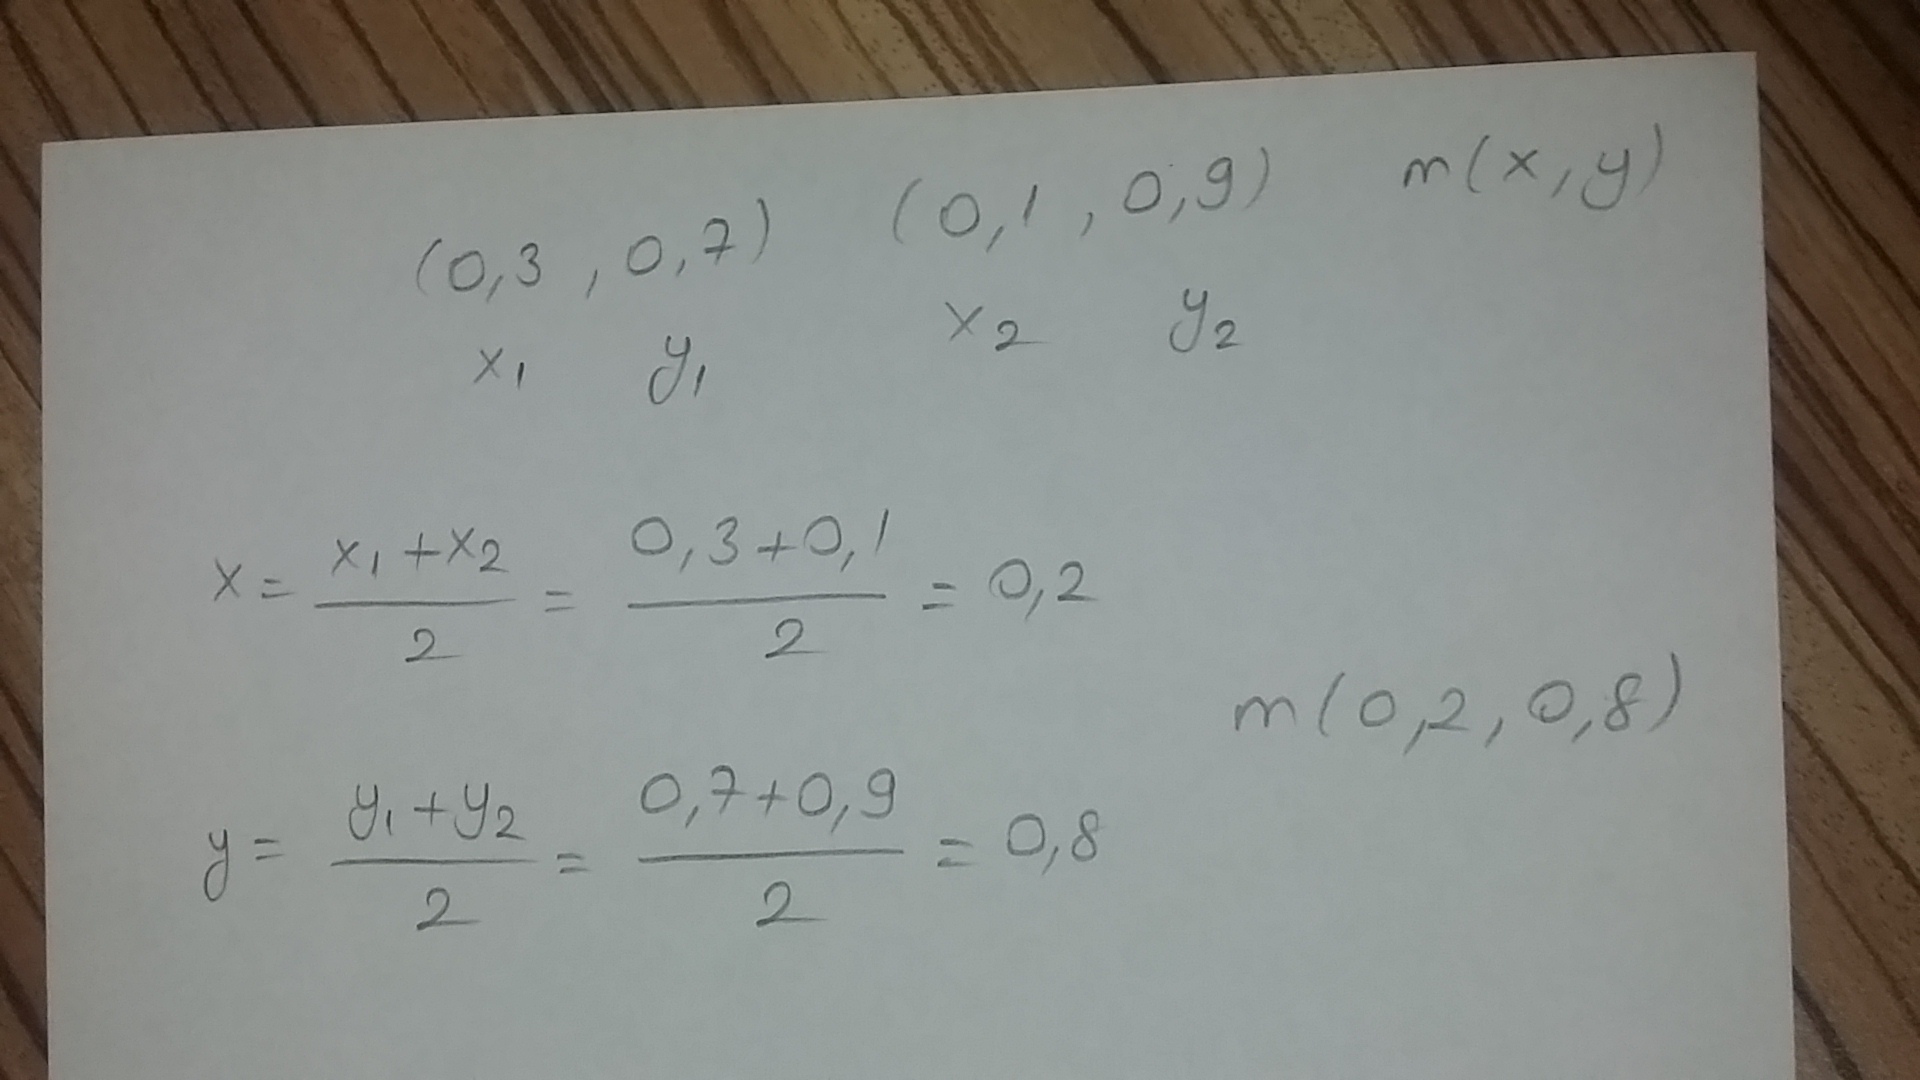 (0,3 , 0,7) (0,1 , 0,9) m(x,y)
x₁ y₁ x₂ y₂
x = (x₁+x₂)/2 = (0,3+0,1)/2 = 0,2
m(0,2, 0,8)
y = (y₁+y₂)/2 = (0,7+0,9)/2 = 0,8